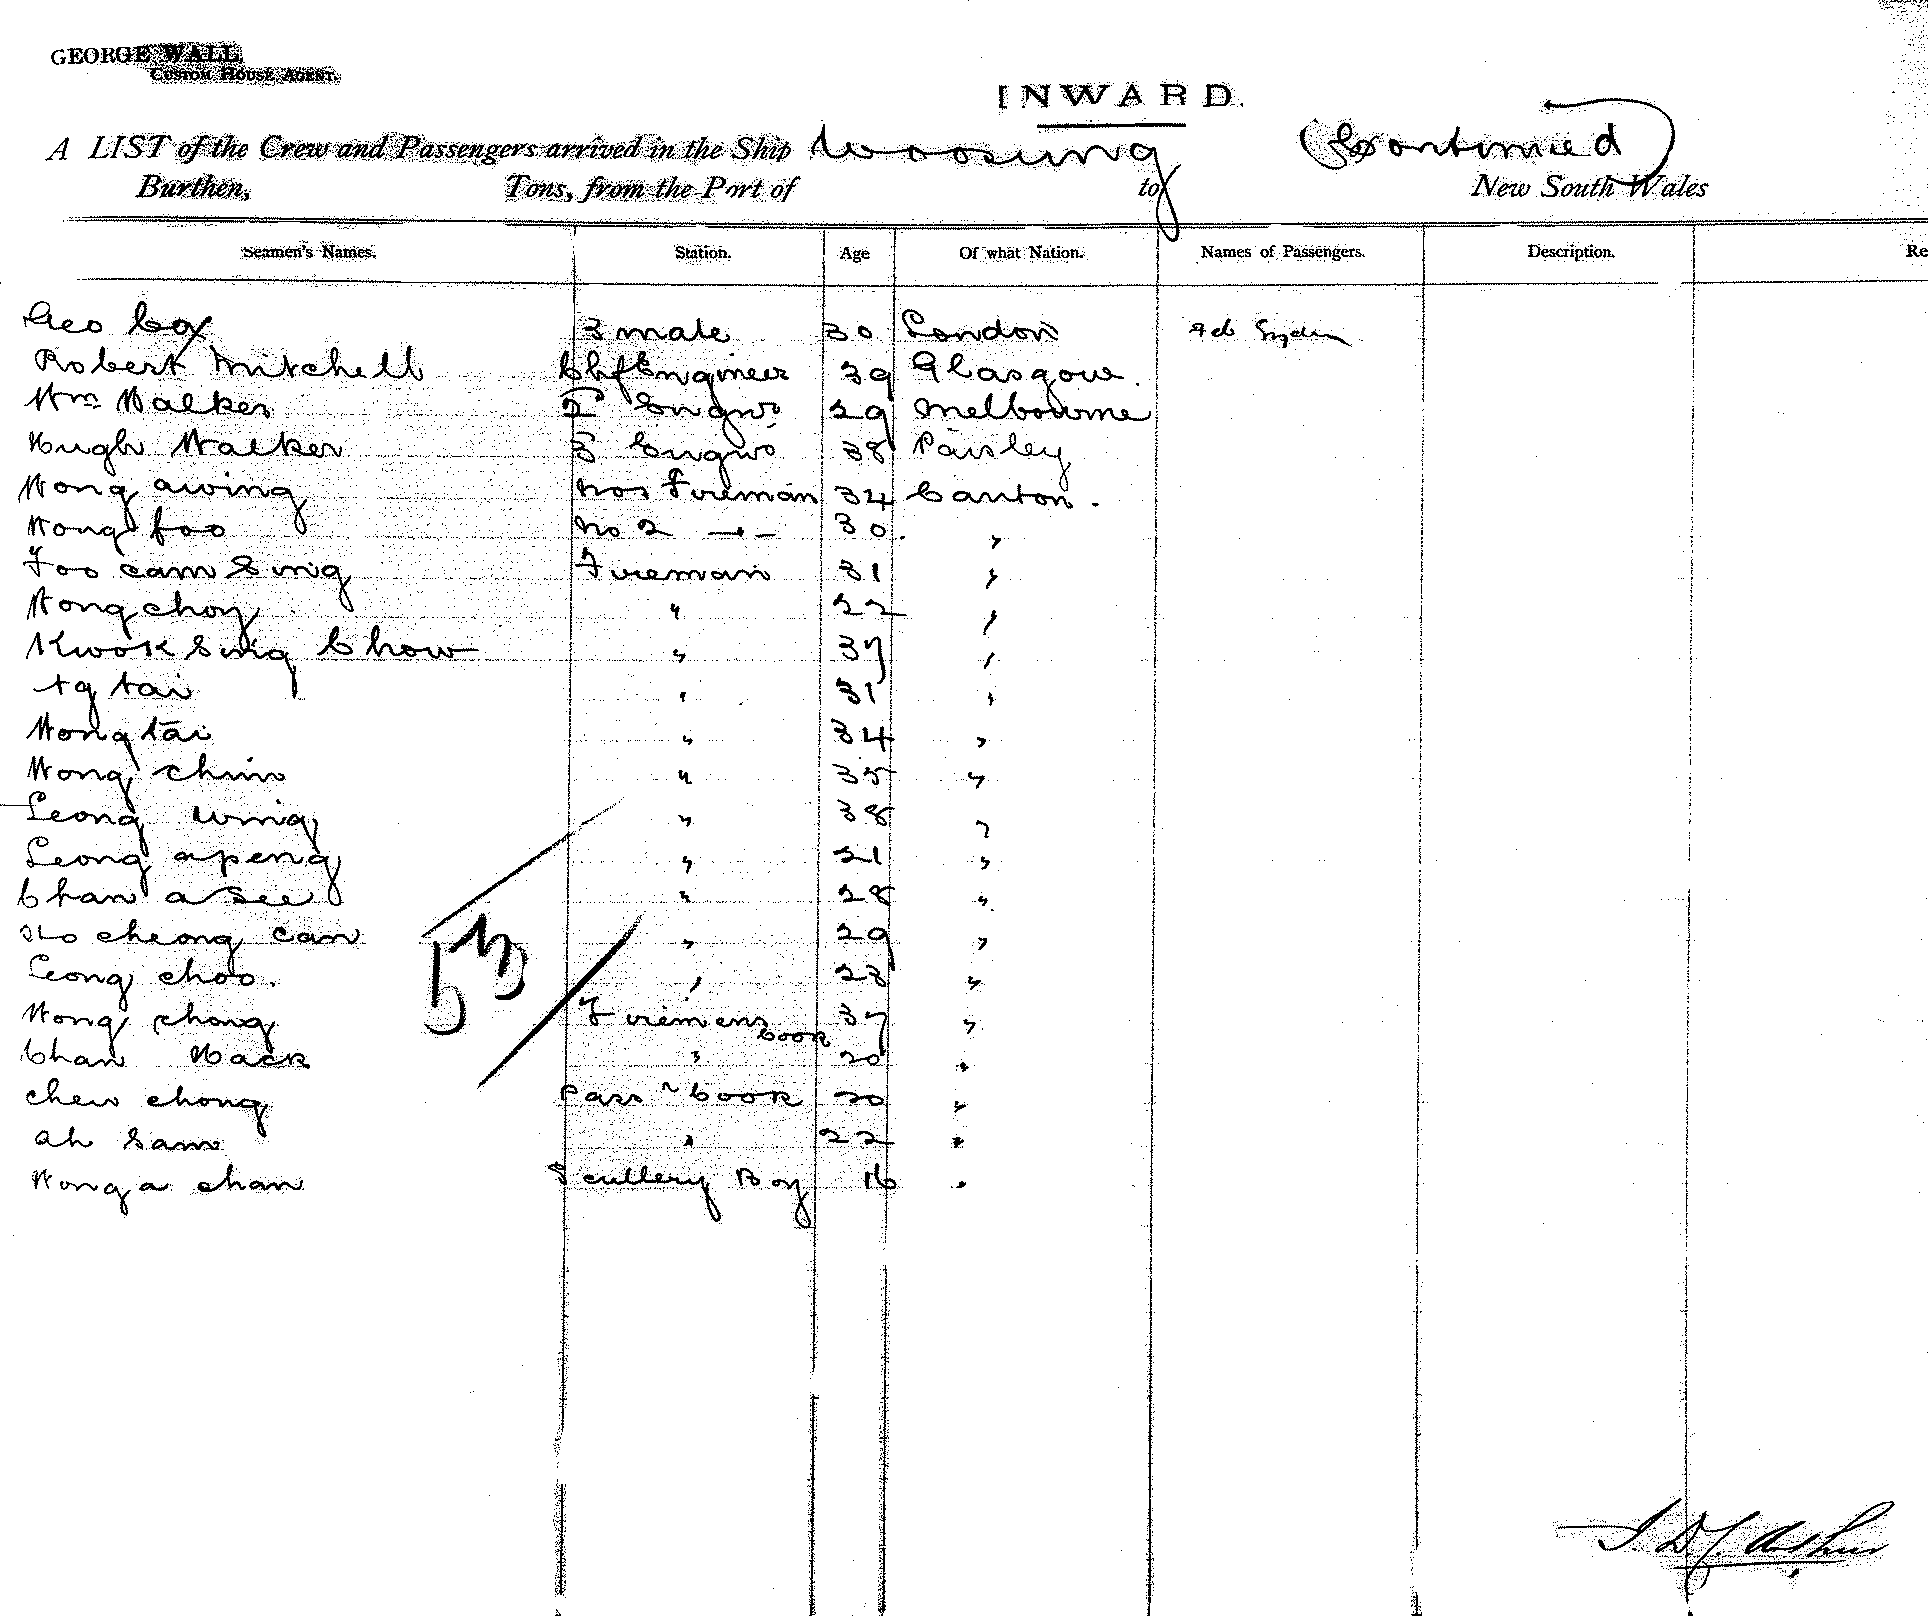 GEORGE WALL
CUSTOM HOUSE AGENT.
INWARD.
A LIST of the Crew and Passengers arrived in the Ship Woosung (Continued)
Burthen, Tons, from the Port of to New South Wales
Seamen's Names. Station. Age Of what Nation. Names of Passengers. Description. Re
Geo Cox 3 mate 30 London
Robert Mitchell Chf Engineer 39 Glasgow.
Wm Walker 2 Engnr 29 Melbourne
Hugh Walker 3 Engnr 38 Paisley
Wong awing No 1 Fireman 34 Canton.
Wong foo No 2 -"- 30 "
Foo cam Sing Fireman 31 "
Wong choy " 22 "
Kwok Sing Chow " 37 "
tai " 31 "
Wong tai " 34 "
Wong chin " 35 "
Leong wing " 38 "
Leong apeng " 21 "
Chan a See " 28 "
Ho cheong can " 29 "
Leong choo. " 28 "
Wong chong Firemens Cook 37 "
Chan Back " 20 "
chew chong Pass Cook 20 "
ah Sam " 22 "
Wong a chan Scullery Boy 16 "
53